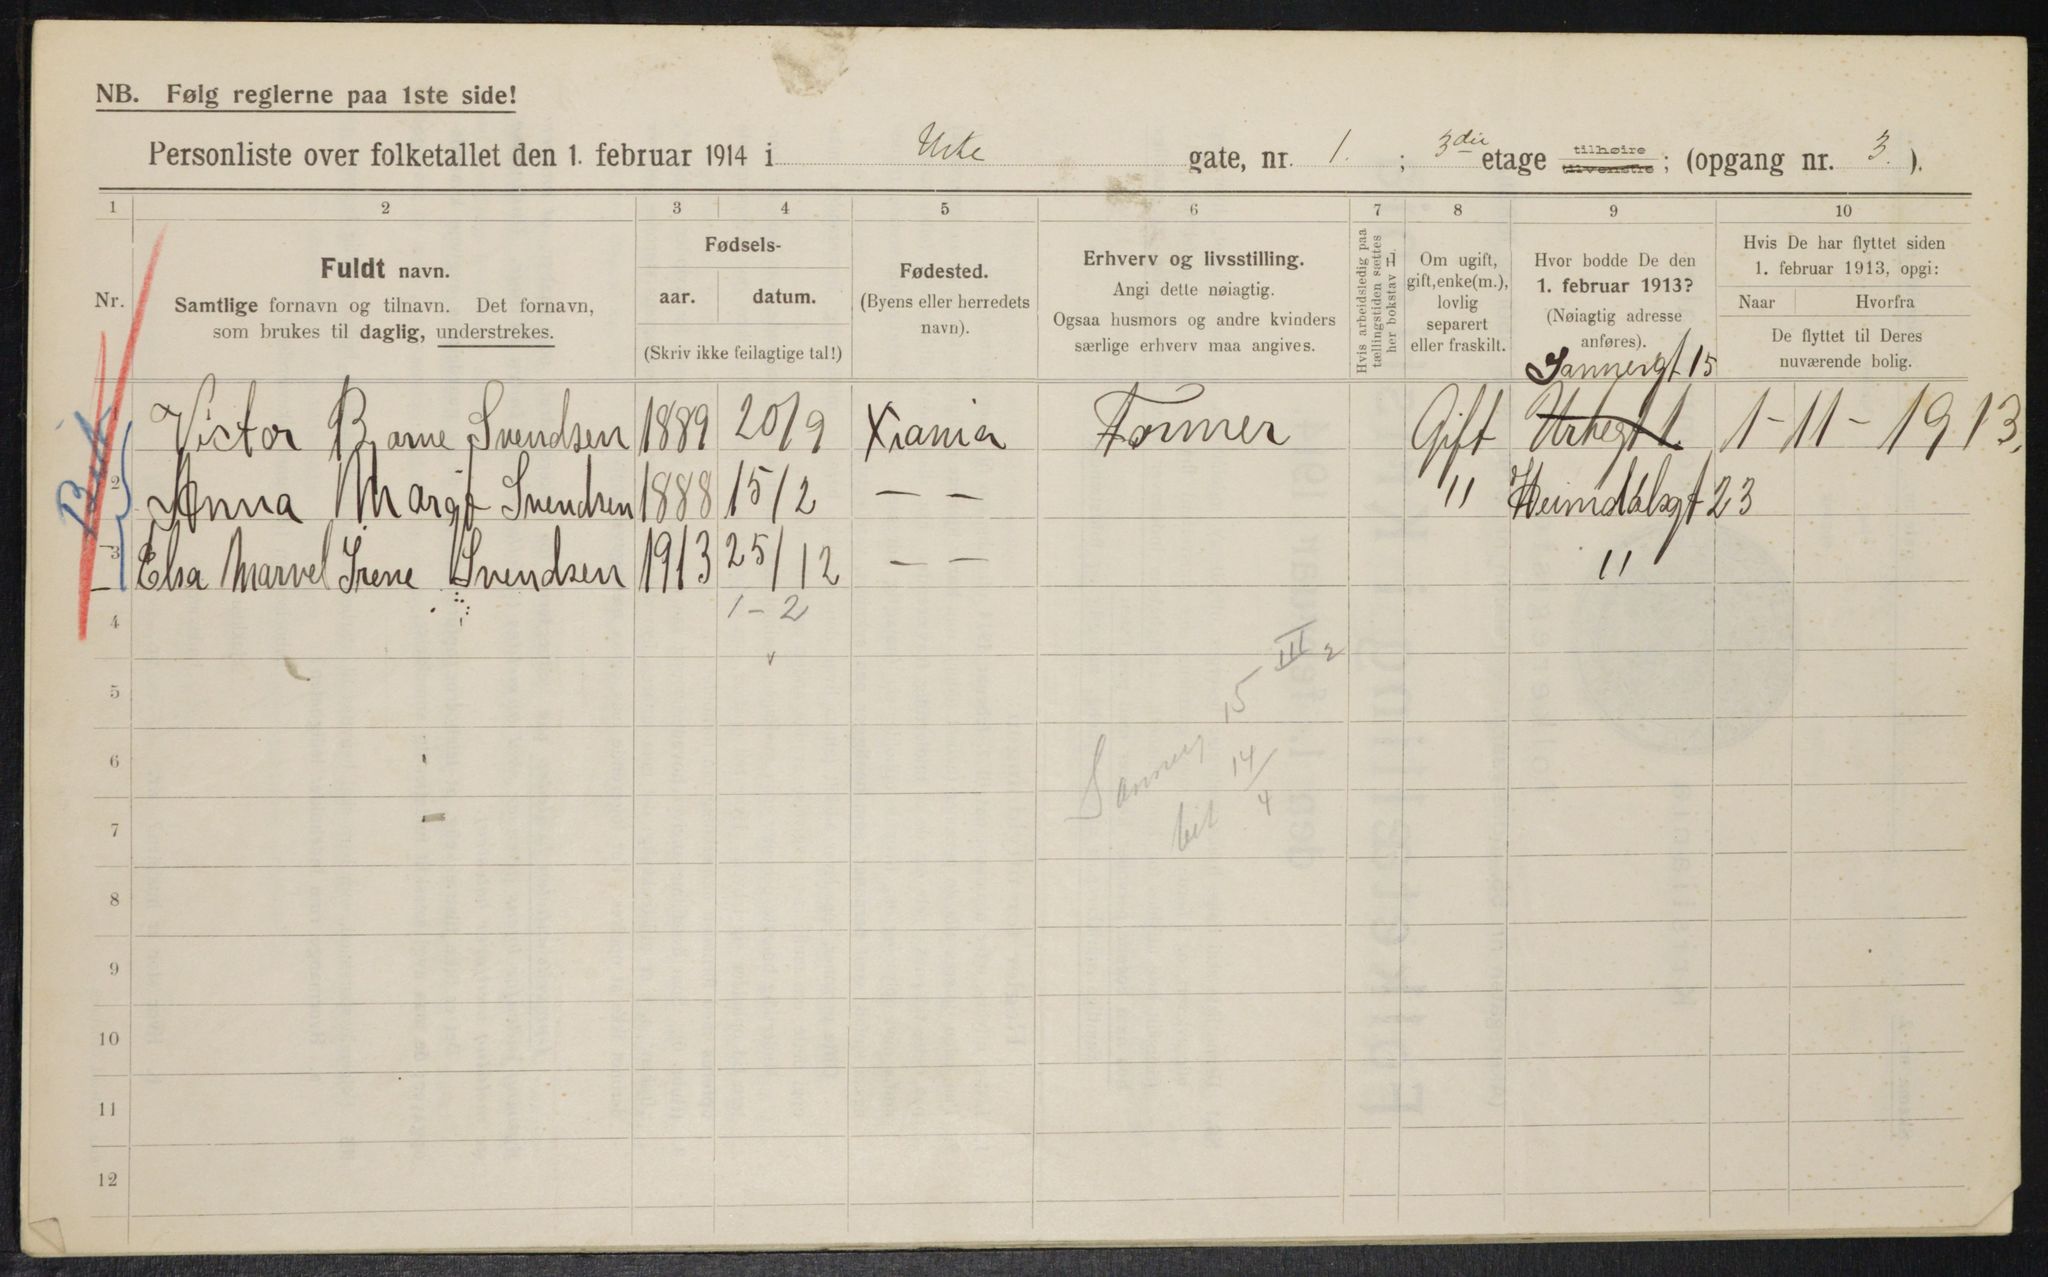 NB. Følg reglerne paa 1ste side!
Personliste over folketallet den 1. februar 1914 i Urte gate, nr. 1. ; 3die etage tilhøire tilvenstre ; (opgang nr. 3. ).
1 2 3 4 5 6 7 8 9 10
Nr.
Fuldt navn.
Samtlige fornavn og tilnavn. Det fornavn,
som brukes til daglig, understrekes.
Fødsels-
aar. datum.
(Skriv ikke feilagtige tal!)
Fødested.
(Byens eller herredets
navn).
Erhverv og livsstilling.
Angi dette nøiagtig.
Ogsaa husmors og andre kvinders
særlige erhverv maa angives.
Hvis arbeidsledig paa
tællingstiden sættes
her bokstav L.
Om ugift,
gift, enke(m.),
lovlig
separert
eller fraskilt.
Hvor bodde De den
1. februar 1913?
(Nøiagtig adresse
anføres).
Hvis De har flyttet siden
1. februar 1913, opgi:
Naar Hvorfra
De flyttet til Deres
nuværende bolig.
Sannergt 15
1 Victor Bjarne Svendsen 1889 20/9 Xiania Former Gift Urtegt 1 1-11-1913.
2 Anna Margit Svendsen 1888 15/2 — — " Heimdalsgt 23
3 Elsa Marvel Irene Svendsen 1913 25/12 — — "
4 1-2
5
6
7
8
9
10
11
12
Sannerg 15 III 2
14/4